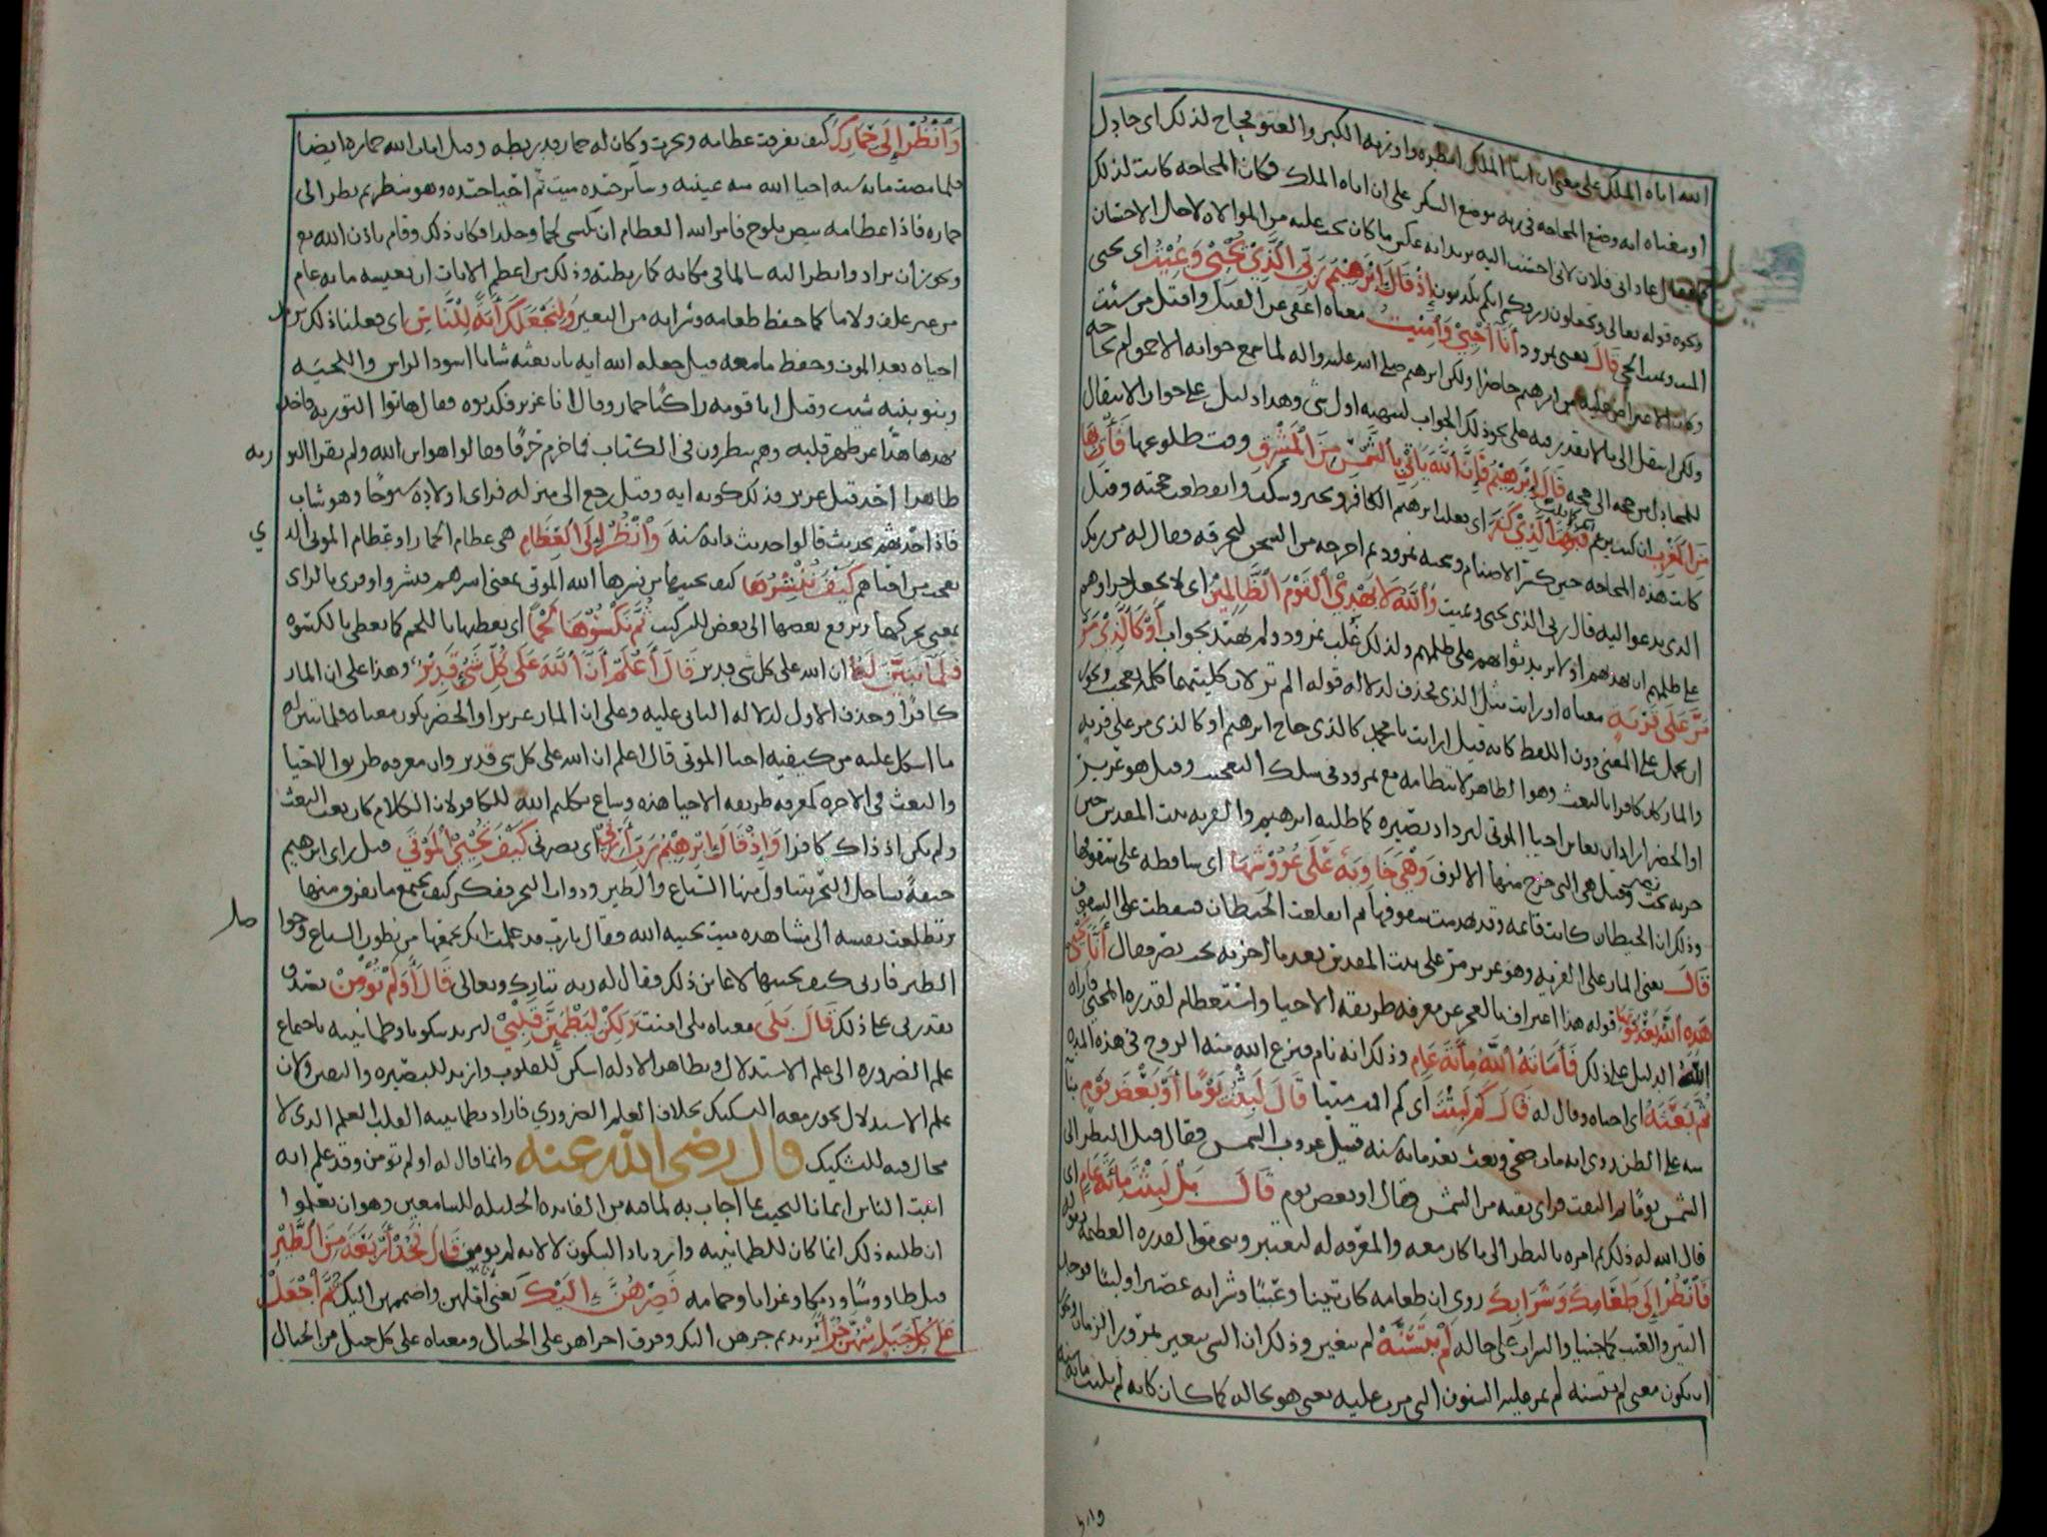 الله اتاه الملك على معنى ان ايتا الملك ابطره واورثه الكبر والعتو فحاج لذلك اى جادل
او معناه انه وضع المحاجه فى ربه موضع الشكر على ان اتاه الملك فكان المحاجه كانت لذلك
كما يقال عادانى فلان لانى احسنت اليه يريد انه عكس ما كان يجب عليه من الموالاه لاجل الاحسان
ونحوه قوله تعالى وتجعلون رزقكم انكم تكذبون إِذْ قَالَ إِبْرَهِيْمُ رَبِّيَ الَّذِيْ يُحْيِيْ وَيُمِيْتُ اى يحيى
الميت ويميت الحي قَالَ يعنى نمرود أَنَا أُحْيِيْ وَأُمِيْتُ معناه اعفى عن القتل واقتل من شئت
وكان الاعتراض عليه من ابرهيم حاضرا ولكن ابرهيم صلى الله عليه واله لما سمع جوابه الاحمق لم يحاجه
ولكن انتقل الى ما لا يقدر فيه على نحو ذلك الجواب ليبهته اول شى وهذا دليل على جواز الانتقال
للمجادل من حجه الى حجه قَالَ إِبْرَهِيْمُ فَإِنَّ اللَّهَ يَأْتِيْ بِالشَّمْسِ مِنَ الْمَشْرِقِ وقت طلوعها فَأْتِ بِهَا
مِنَ الْمَغْرِبِ ان كنت فَبُهِتَ الَّذِيْ كَفَرَ اى فغلب ابرهيم الكافر وتحير وسكت وانقطعت حجته وقيل
كانت هذه المحاجه حين كسر الاصنام وسجنه نمرود ثم اخرجه من السجن ليحرقه فقال له من ربك
الذى يدعوا اليه قال ربى الذى يحيى ويميت وَاللَّهُ لَا يَهْدِيْ الْقَوْمَ الظَّالِمِيْنَ اى لا يجعل جزاوهم
على ظلمهم ان يهديهم او لا يريد ثوابهم على ظلمهم ولذلك غلب نمرود ولم يهتد بجواب أَوْ كَالَّذِيْ مَرَّ
مَرَّ عَلَى قَرْيَةٍ معناه او رايت مثل الذى فحذف لدلاله قوله الم تر لان كلتيهما كلمه تعجب ويجوز
ان يحمل على المعنى دون اللفظ كانه قيل ارايت يا محمد كالذى حاج ابرهيم او كالذى مر على قريه
والمار كان كافرا بالبعث وهو الظاهر لانتظامه مع نمرود فى سلك التعجب وقيل هو عزير
او الخضر اراد ان يعاين احيا الموتى ليزداد بصيره كما طلبه ابرهيم والقريه بيت المقدس حين
خربه بخت نصر وقيل هى التى خرج منها الالوف وَهْيَ خَاوِيَةٌ عَلَى عُرُوْشِهَا اى ساقطه على سقوفها
وذلك ان الحيطان كانت قائمه وقد تهدمت سقوفها ثم انقلعت الحيطان فسقطت على السقوف
قَالَ يعنى المار على القريه وهو عزير مر على بيت المقدس بعد ما اخربه بخت نصر فقال أَنَّى يُحْيِيْ
هَذِهِ اللَّهُ بَعْدَ مَوْتِهَا قوله هذا اعتراف بالعجز عن معرفه طريقه الاحيا واستعظام لقدره المحيى فاراه
الله الدليل على ذلك فَأَمَاتَهُ اللَّهُ مِائَةَ عَامٍ وذلك انه نام فنزع الله منه الروح فى هذه المده
ثُمَّ بَعَثَهُ اى احياه وقال له قَالَ كَمْ لَبِثْتَ اى كم اقمت ميتا قَالَ لَبِثْتُ يَوْمًا أَوْ بَعْضَ يَوْمٍ بنا
منه على الظن روى انه مات ضحى وبعث بعد مائه سنه قبل غروب الشمس فقال قبل النظر الى
الشمس يوما ثم التفت فراى بقيه من الشمس فقال او بعض يوم قَالَ بَلْ لَبِثْتَ مِائَةَ عَامٍ اى
قال الله له ذلك ثم امره بالنظر الى ما كان معه والمعرفه له ليعتبر ويتحقق القدره العظيمه
فَانْظُرْ إِلَى طَعَامِكَ وَشَرَابِكَ روى ان طعامه كان تينا وعنبا وشرابه عصيرا او لبنا فوجد
التين والعنب كما جنيا والشراب على حاله لَمْ يَتَسَنَّهْ لم يتغير وذلك ان الشى يتغير بمرور الزمان ويجوز
ان يكون معنى لم يتسنه لم تمر عليه السنون التى مرت عليه يعنى هو بحاله كما كان كانه لم يلبث مائه سنه
وَانْظُرْ إِلَى حِمَارِكَ كيف تفرقت عظامه ونخرت وكان له حمار قد ربطه وقيل امات الله حماره ايضا
فلما مضت مائه سنه احيا الله منه عينيه وسائر جسده ميت ثم احيا جسده وهو ينظر ثم نظر الى
حماره فاذا عظامه بيض تلوح فامر الله العظام ان تكسى لحما وجلدا فكان ذلك وقام باذن الله تع
ويجوز ان يراد وانظر اليه سالما فى مكانه كما ربطته وذلك من اعظم الايات ان يعيشه مائه عام
من غير علف ولا ما كما حفظ طعامه وشرابه من التغير وَلِنَجْعَلَكَ آيَةً لِلنَّاسِ اى فعلنا ذلك نريد
احياه بعد الموت وحفظ ما معه قيل جعله الله ايه بان بعثه شابا اسود الراس واللحيه
وبنو بنيه شيب وقيل اتا قومه راكبا حمار وقال انا عزير فكذبوه فقال هاتوا التوريه فاخذ
يهذها هذا عن ظهر قلبه وهم ينظرون فى الكتاب فما خرم حرفا فقالوا هو ابن الله ولم يقرا التو
ريه
ظاهرا احد قبل عزير فذلك كونه ايه وقيل رجع الى منزله فراى اولاده شيوخا وهو شاب
فاذا حدثهم بحديث قالوا حديث مائه سنه وَانْظُرْ إِلَى الْعِظَامِ هى عظام الحمار او عظام الموتى الذ
ي
تعجب من احياهم كَيْفَ نُنْشِرُهَا كيف نحييها من نشرها الله الموتى بمعنى انشرهم فنشروا وقرى بالزاى
بمعنى نحركها ونرفع بعضها الى بعض للتركيب ثُمَّ نَكْسُوْهَا لَحْمًا اى نغطيها باللحم كما نغطى بالكسوه
فَلَمَّا تَبَيَّنَ لَهُ ان الله على كل شى قدير قَالَ أَعْلَمُ أَنَّ اللَّهَ عَلَى كُلِّ شَيْءٍ قَدِيْرٌ وهذا على ان المار
كافرا وحذف الاول لدلاله الثانى عليه وعلى ان المار عزير او الخضر يكون معناه فلما تبين له
ما اشكل عليه من كيفيه احيا الموتى قال اعلم ان الله على كل شى قدير وان معرفه طريق الاحيا
والبعث فى الاخره كمعرفه طريقه الاحيا هذه وساغ تكليم الله للكافر لان الكلام كان بعد البعث
ولم يكن اذ ذاك كافرا وَإِذْ قَالَ إِبْرَهِيْمُ رَبِّ أَرِنِيْ اى بصرنى كَيْفَ تُحْيِيْ الْمَوْتَى قيل راى ابرهيم
جيفة بساحل البحر يتناول منها السباع والطير ودواب البحر ففكر كيف يجتمع ما تفرق منها
وتطلعت نفسه الى مشاهده ميت يحييه الله فقال يا رب قد علمت انك تجمعها من بطون السباع وحوا
صل
الطير فارنى كيف تحييها لاعاين ذلك فقال له ربه تبارك وتعالى قَالَ أَوَلَمْ تُؤْمِنْ تصدق
بقدرتى على ذلك قَالَ بَلَى معناه بلى امنت وَلَكِنْ لِيَطْمَئِنَّ قَلْبِيْ ليزيد سكونا وطمانينه باجتماع
علم الضروره الى علم الاستدلال وتظاهر الادله اسكن للقلوب وازيد للبصيره واليقين ولان
علم الاستدلال يجوز معه التشكيك بخلاف العلم الضروري فاراد بطمانينه القلب العلم الذى لا
مجال فيه للتشكيك قال رضى الله عنه وانما قال له اولم تؤمن وقد علم انه
اثبت الناس ايمانا ليجيب بما اجاب به لما فيه من الفايده الجليله للسامعين وهو ان يعلموا
ان طلبه ذلك انما كان للطمانينه وازدياد السكون لا لانه لم يؤمن قَالَ فَخُذْ أَرْبَعَةً مِنَ الطَّيْرِ
قيل طاووسا وديكا وغرابا وحمامه فَصِرْهُنَّ إِلَيْكَ يعنى املهن واضممهن اليك ثُمَّ اجْعَلْ
عَلَى كُلِّ جَبَلٍ مِنْهُنَّ جُزْءًا يريد ثم جزهن اليك وفرق اجزاهن على الجبال ومعناه على كل جبل من الجبال